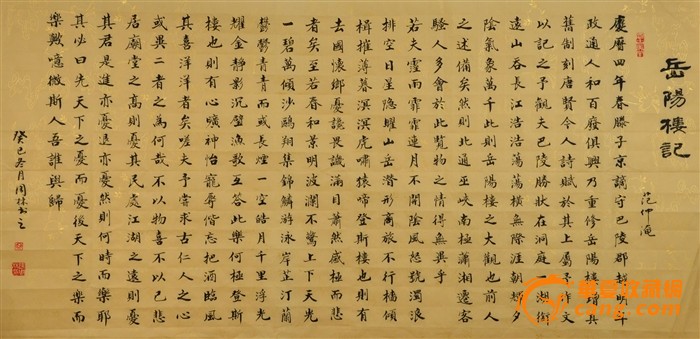 岳陽樓記
范仲淹
慶曆四年春滕子京謫守巴陵郡越明年
政通人和百廢俱興乃重修岳陽樓增其
舊制刻唐賢今人詩賦於其上屬予作文
以記之予觀夫巴陵勝狀在洞庭一湖銜
遠山吞長江浩浩蕩蕩橫無際涯朝暉夕
陰氣象萬千此則岳陽樓之大觀也前人
之述備矣然則北通巫峽南極瀟湘遷客
騷人多會於此覽物之情得無異乎
若夫霪雨霏霏連月不開陰風怒號濁浪
排空日星隱耀山岳潛形商旅不行檣傾
楫摧薄暮冥冥虎嘯猿啼登斯樓也則有
去國懷鄉憂讒畏譏滿目蕭然感極而悲
者矣至若春和景明波瀾不驚上下天光
一碧萬頃沙鷗翔集錦鱗游泳岸芷汀蘭
鬱鬱青青而或長煙一空皓月千里浮光
耀金靜影沉璧漁歌互答此樂何極登斯
樓也則有心曠神怡寵辱偕忘把酒臨風
其喜洋洋者矣嗟夫予嘗求古仁人之心
或異二者之為何哉不以物喜不以己悲
居廟堂之高則憂其民處江湖之遠則憂
其君是進亦憂退亦憂然則何時而樂耶
其必曰先天下之憂而憂後天下之樂而
樂歟噫微斯人吾誰與歸
癸巳冬月周林書之
华夏收藏网